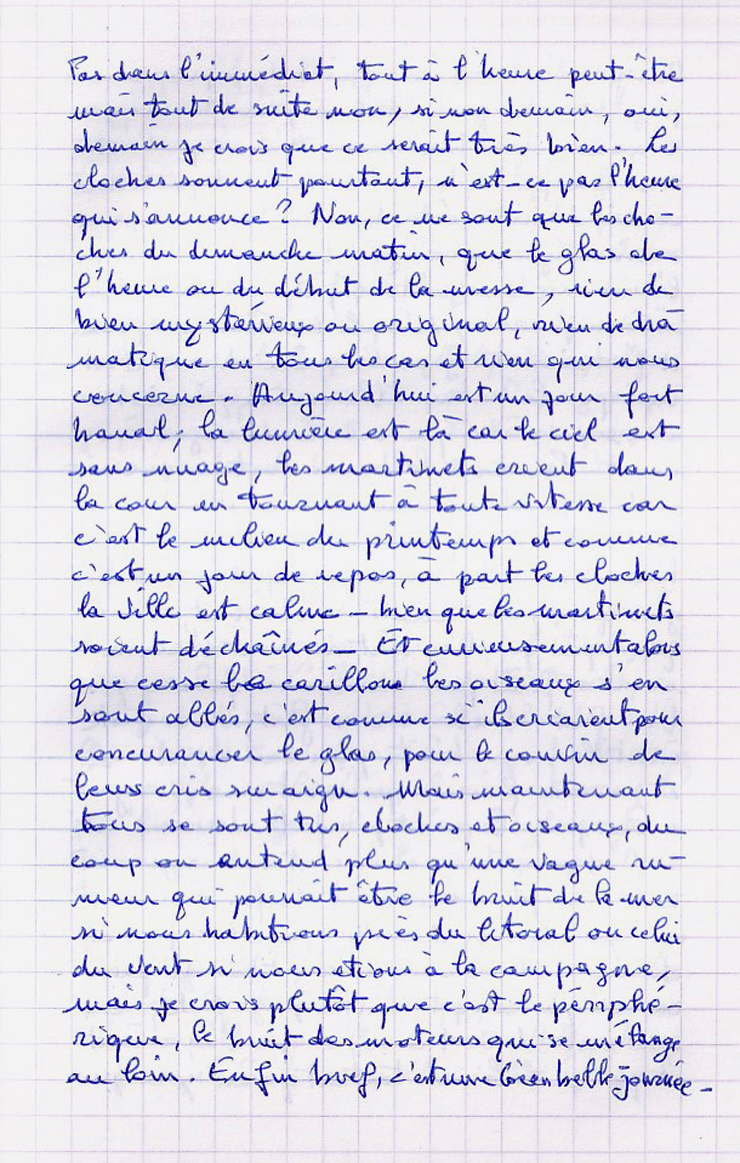 Pas dans l'immédiat, tout à l'heure peut-être
mais tout de suite non, sinon demain, oui,
demain je crois que ce serait très bien. Les
cloches sonnent pourtant, n'est-ce pas l'heure
qui s'annonce? Non, ce ne sont que les clo-
ches du dimanche matin, que le glas de
l'heure ou du début de la messe, rien de
bien mystérieux ou original, rien de dra
matique en tous les cas et rien qui nous
concerne. Aujourd'hui est un jour fort
banal, la lumière est là car le ciel est
sans nuage, les martinets crient dans
la cour en tournant à toute vitesse car
c'est le milieu du printemps et comme
c'est un jour de repos, à part les cloches
la ville est calme - bien que les martinets
soient déchaînés - Et curieusement alors
que cesse le carillon les oiseaux s'en
sont allés, c'est comme si ils criaient pour
concurancer le glas, pour le couvrir de
leurs cris suraigu. Mais maintenant
tous se sont tus, cloches et oiseaux, du
coup on entend plus qu'une vague ru-
meur qui pourrait être le bruit de la mer
si nous habitions près du litoral ou celui
du vent si nous etions à la campagne,
mais je crois plutôt que c'est le périphé-
rique, le bruit des moteurs qui se mélange
au loin. Enfin bref, c'est une bien belle journée -